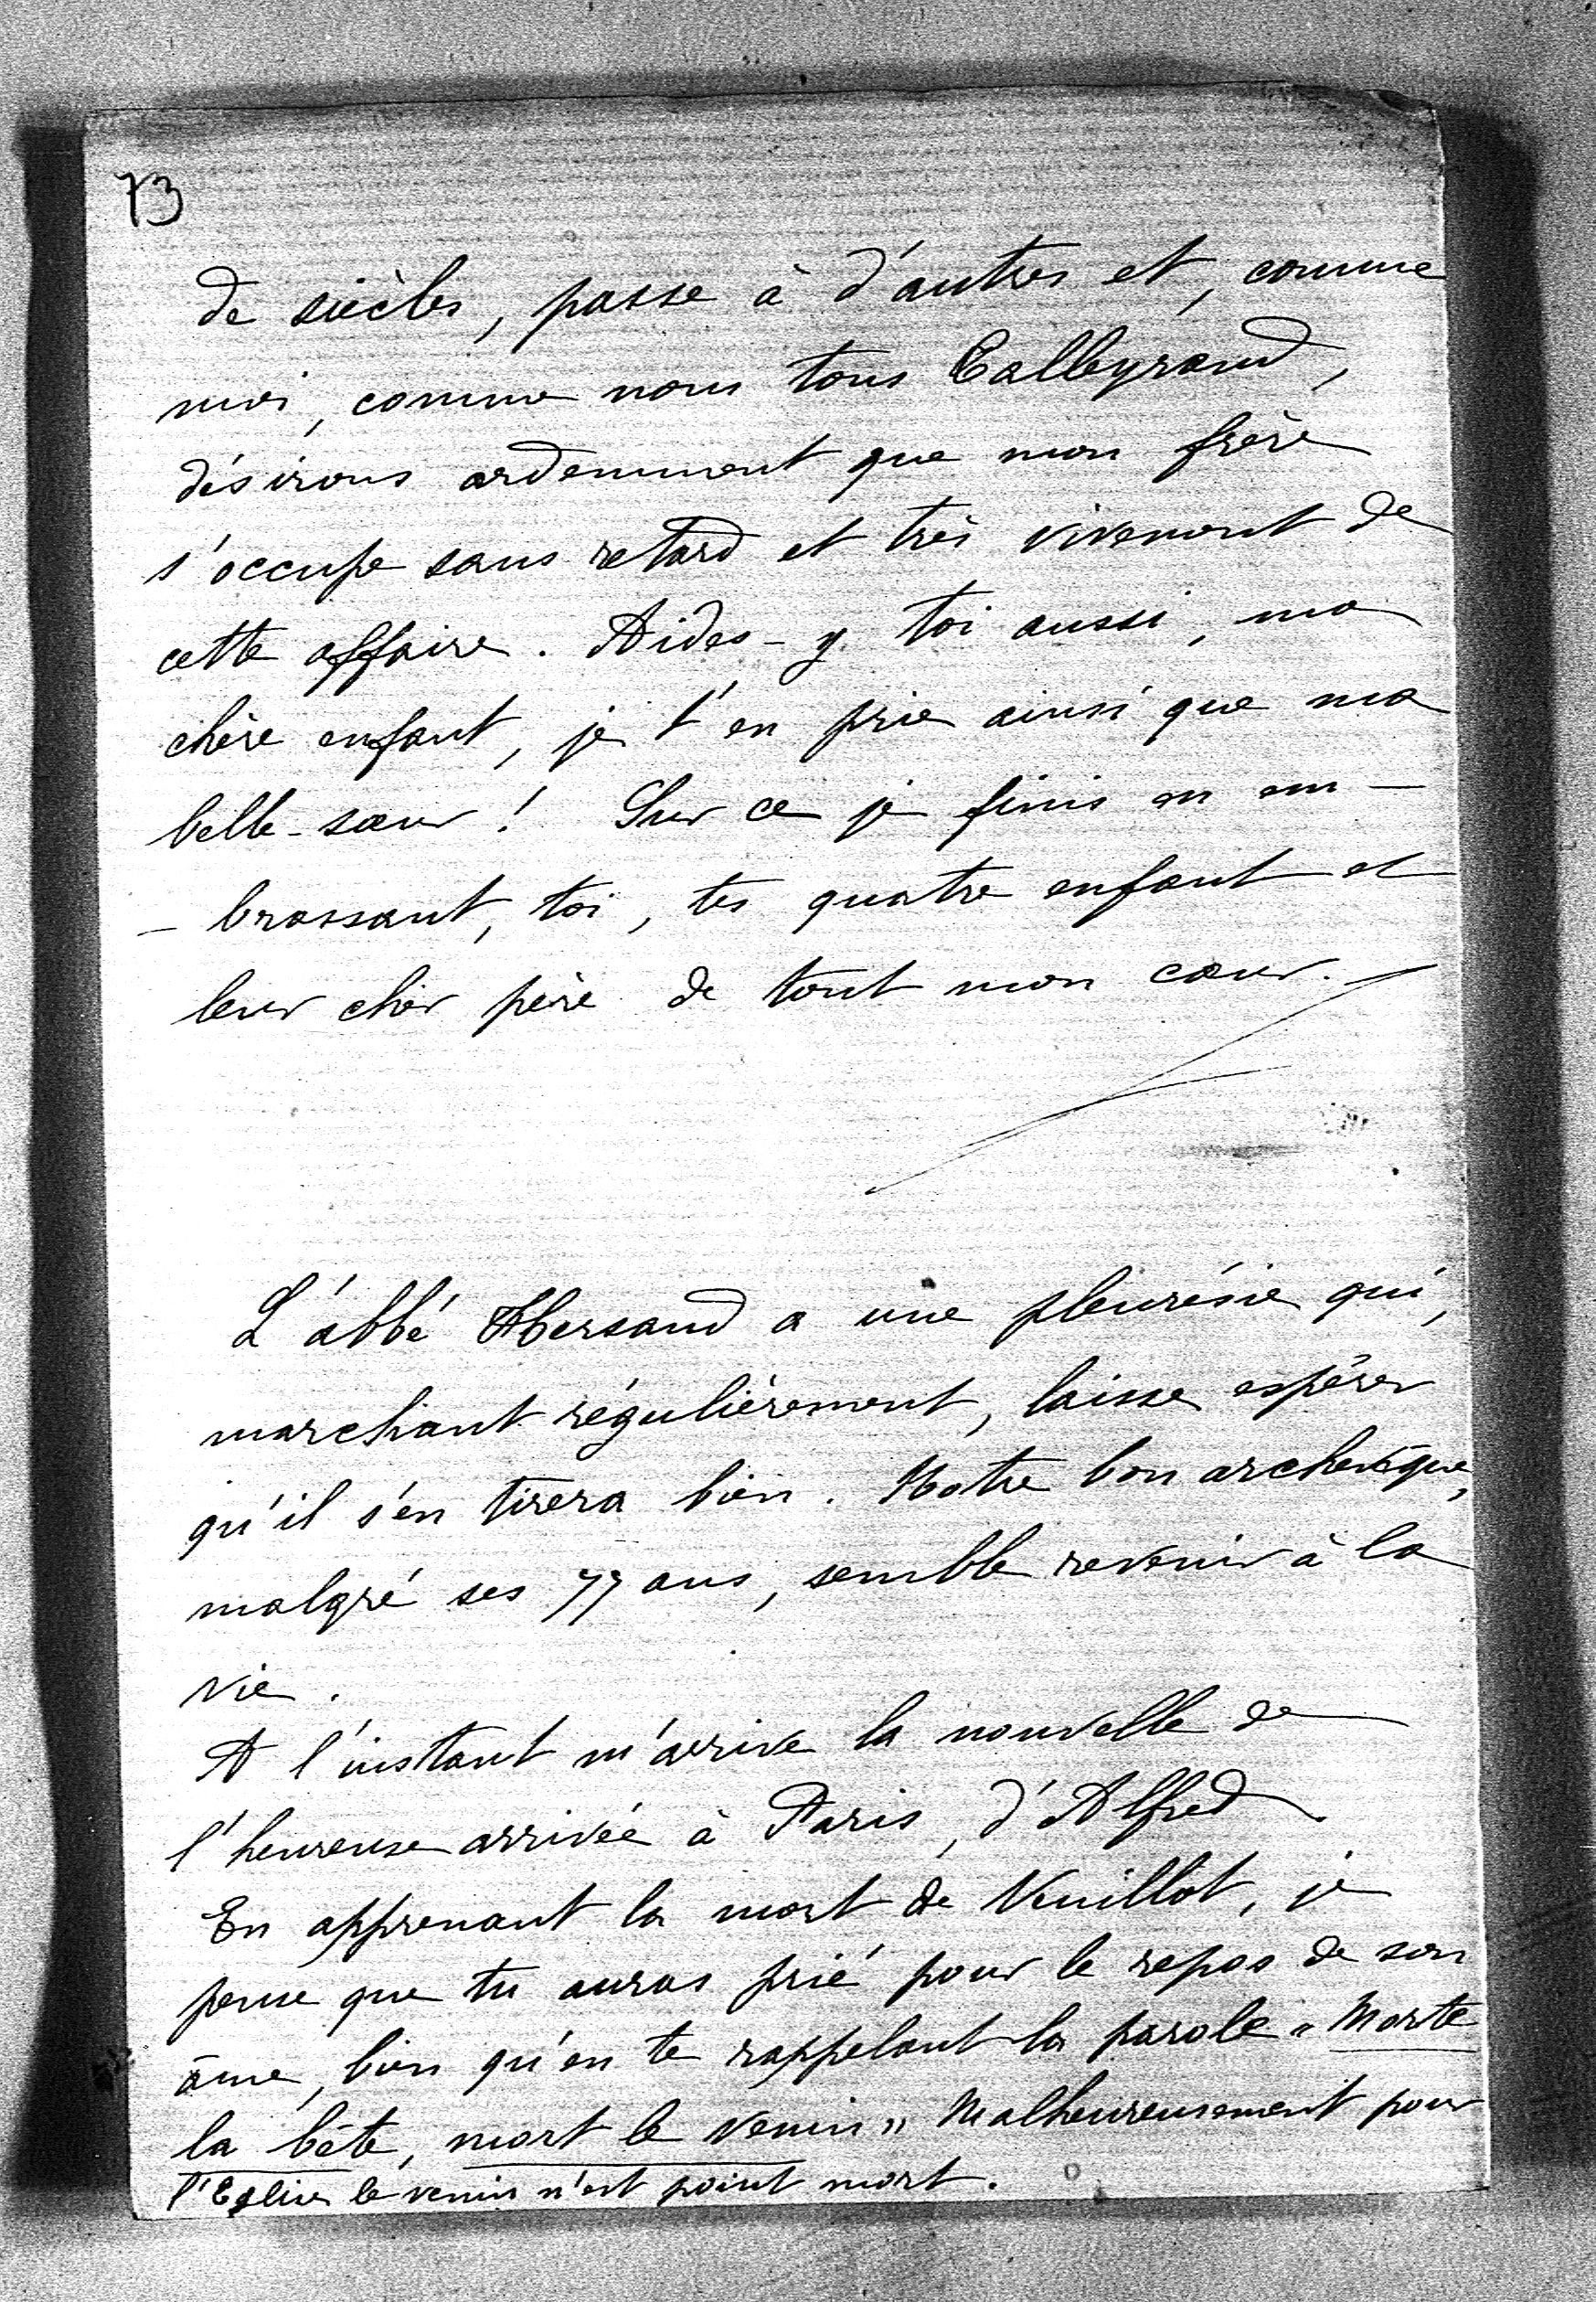 73
de siècles, passe à d'autres et, comme
moi, comme nous tous Talleyrand,
désirons ardemment que mon frère
s'occupe sans retard et très vivement de
cette affaire. Aides-y toi aussi, ma
chère enfant, je t'en prie ainsi que ma
belle-sœur ! Sur ce je finis en em-
-brassant, toi, tes quatre enfant et
leur cher père de tout mon cœur.
L'abbé a une pleurésie qui,
marchant régulièrement, laisse espérer
qu'il s'en tirera bien. Notre bon archevêque,
malgré ses 77 ans, semble revenir à la
vie.
A l'instant m'arrive la nouvelle de
l'heureuse arrivée à Paris, d'Alfred
En apprenant la mort de Veuillot, je
pense que tu auras prié pour le repos de son
âme, bien qu'en te rappelant la parole « Morte
la bête, mort le venin » Malheureusement pour
l'Eglise le venin n'est point mort.